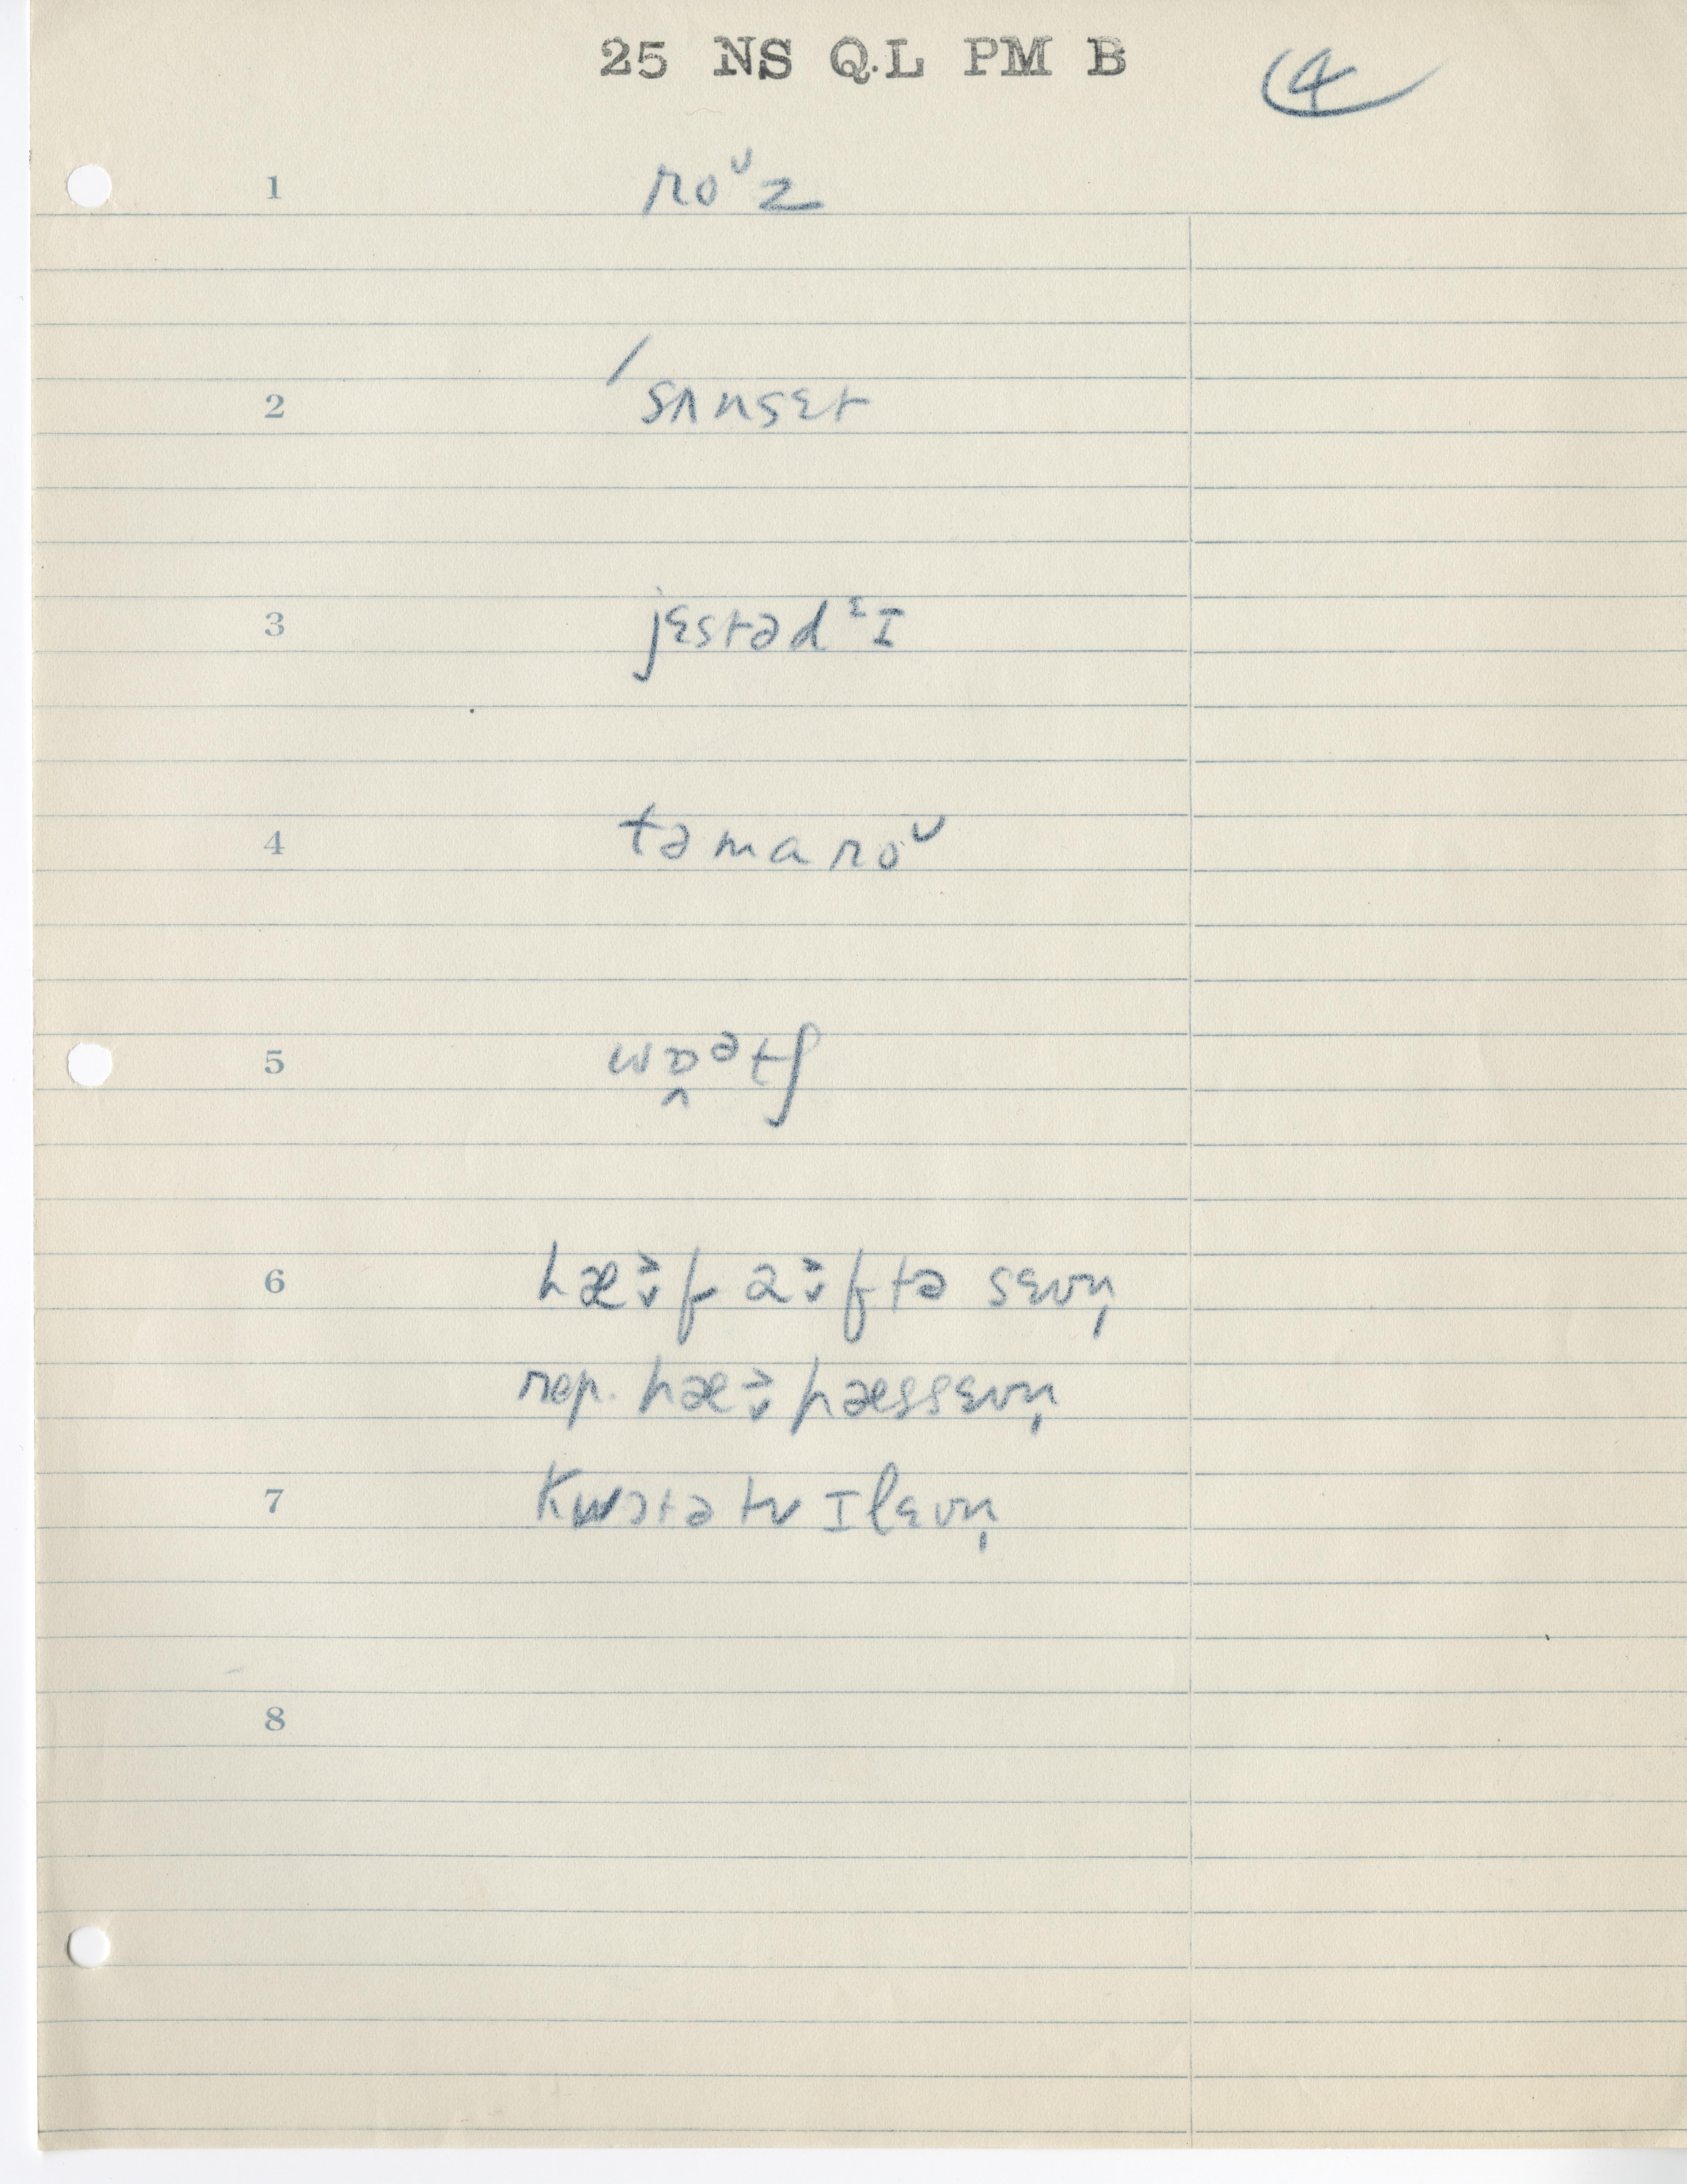 25 NS Q.L PM B 4
1 roᶷz
2 ′sʌnsɛt
3 jɛstədᵋɪ
4 təmaroᶷ
5 wɒ̭ᵊtʃ
6 hæ f a ftə sɛvn̩
rep. hæ pæssɛvn̩
7 kwɔtə tv ɪlɛvn̩
8